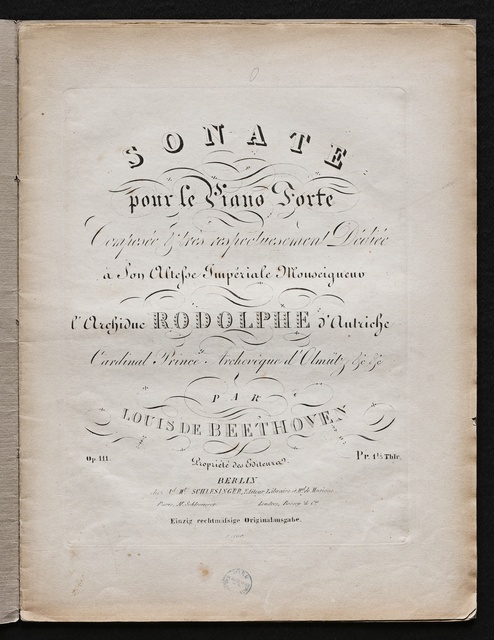 SONATE
pour le Piano Forte
Composée & très respectueusement Dediée
à Son Altesse Impériale Monseigneur
l'Archiduc RODOLPHE d'Autriche
Cardinal Prince Archevêque d'Olmütz &c &c
PAR
LOUIS DE BEETHOVEN
Op. 111. Pr. 1½ Thlr.
Propriété des Editeurs
BERLIN
SCHLESINGER, Editeur Libraire et Md de Musique
Paris, Mce Schlesinger. Londres, Boosey & Co
Einzig rechtmässige Originalausgabe.